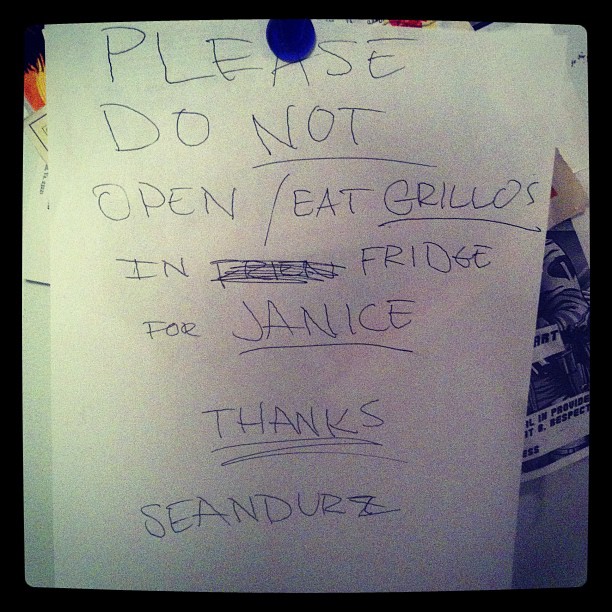 PLEASE
DO NOT
OPEN / EAT GRILLO'S
IN FRIDGE
FOR JANICE
THANKS
SEANDURZ
ART
L IN PROVIDE
T & RESPECT
ESS